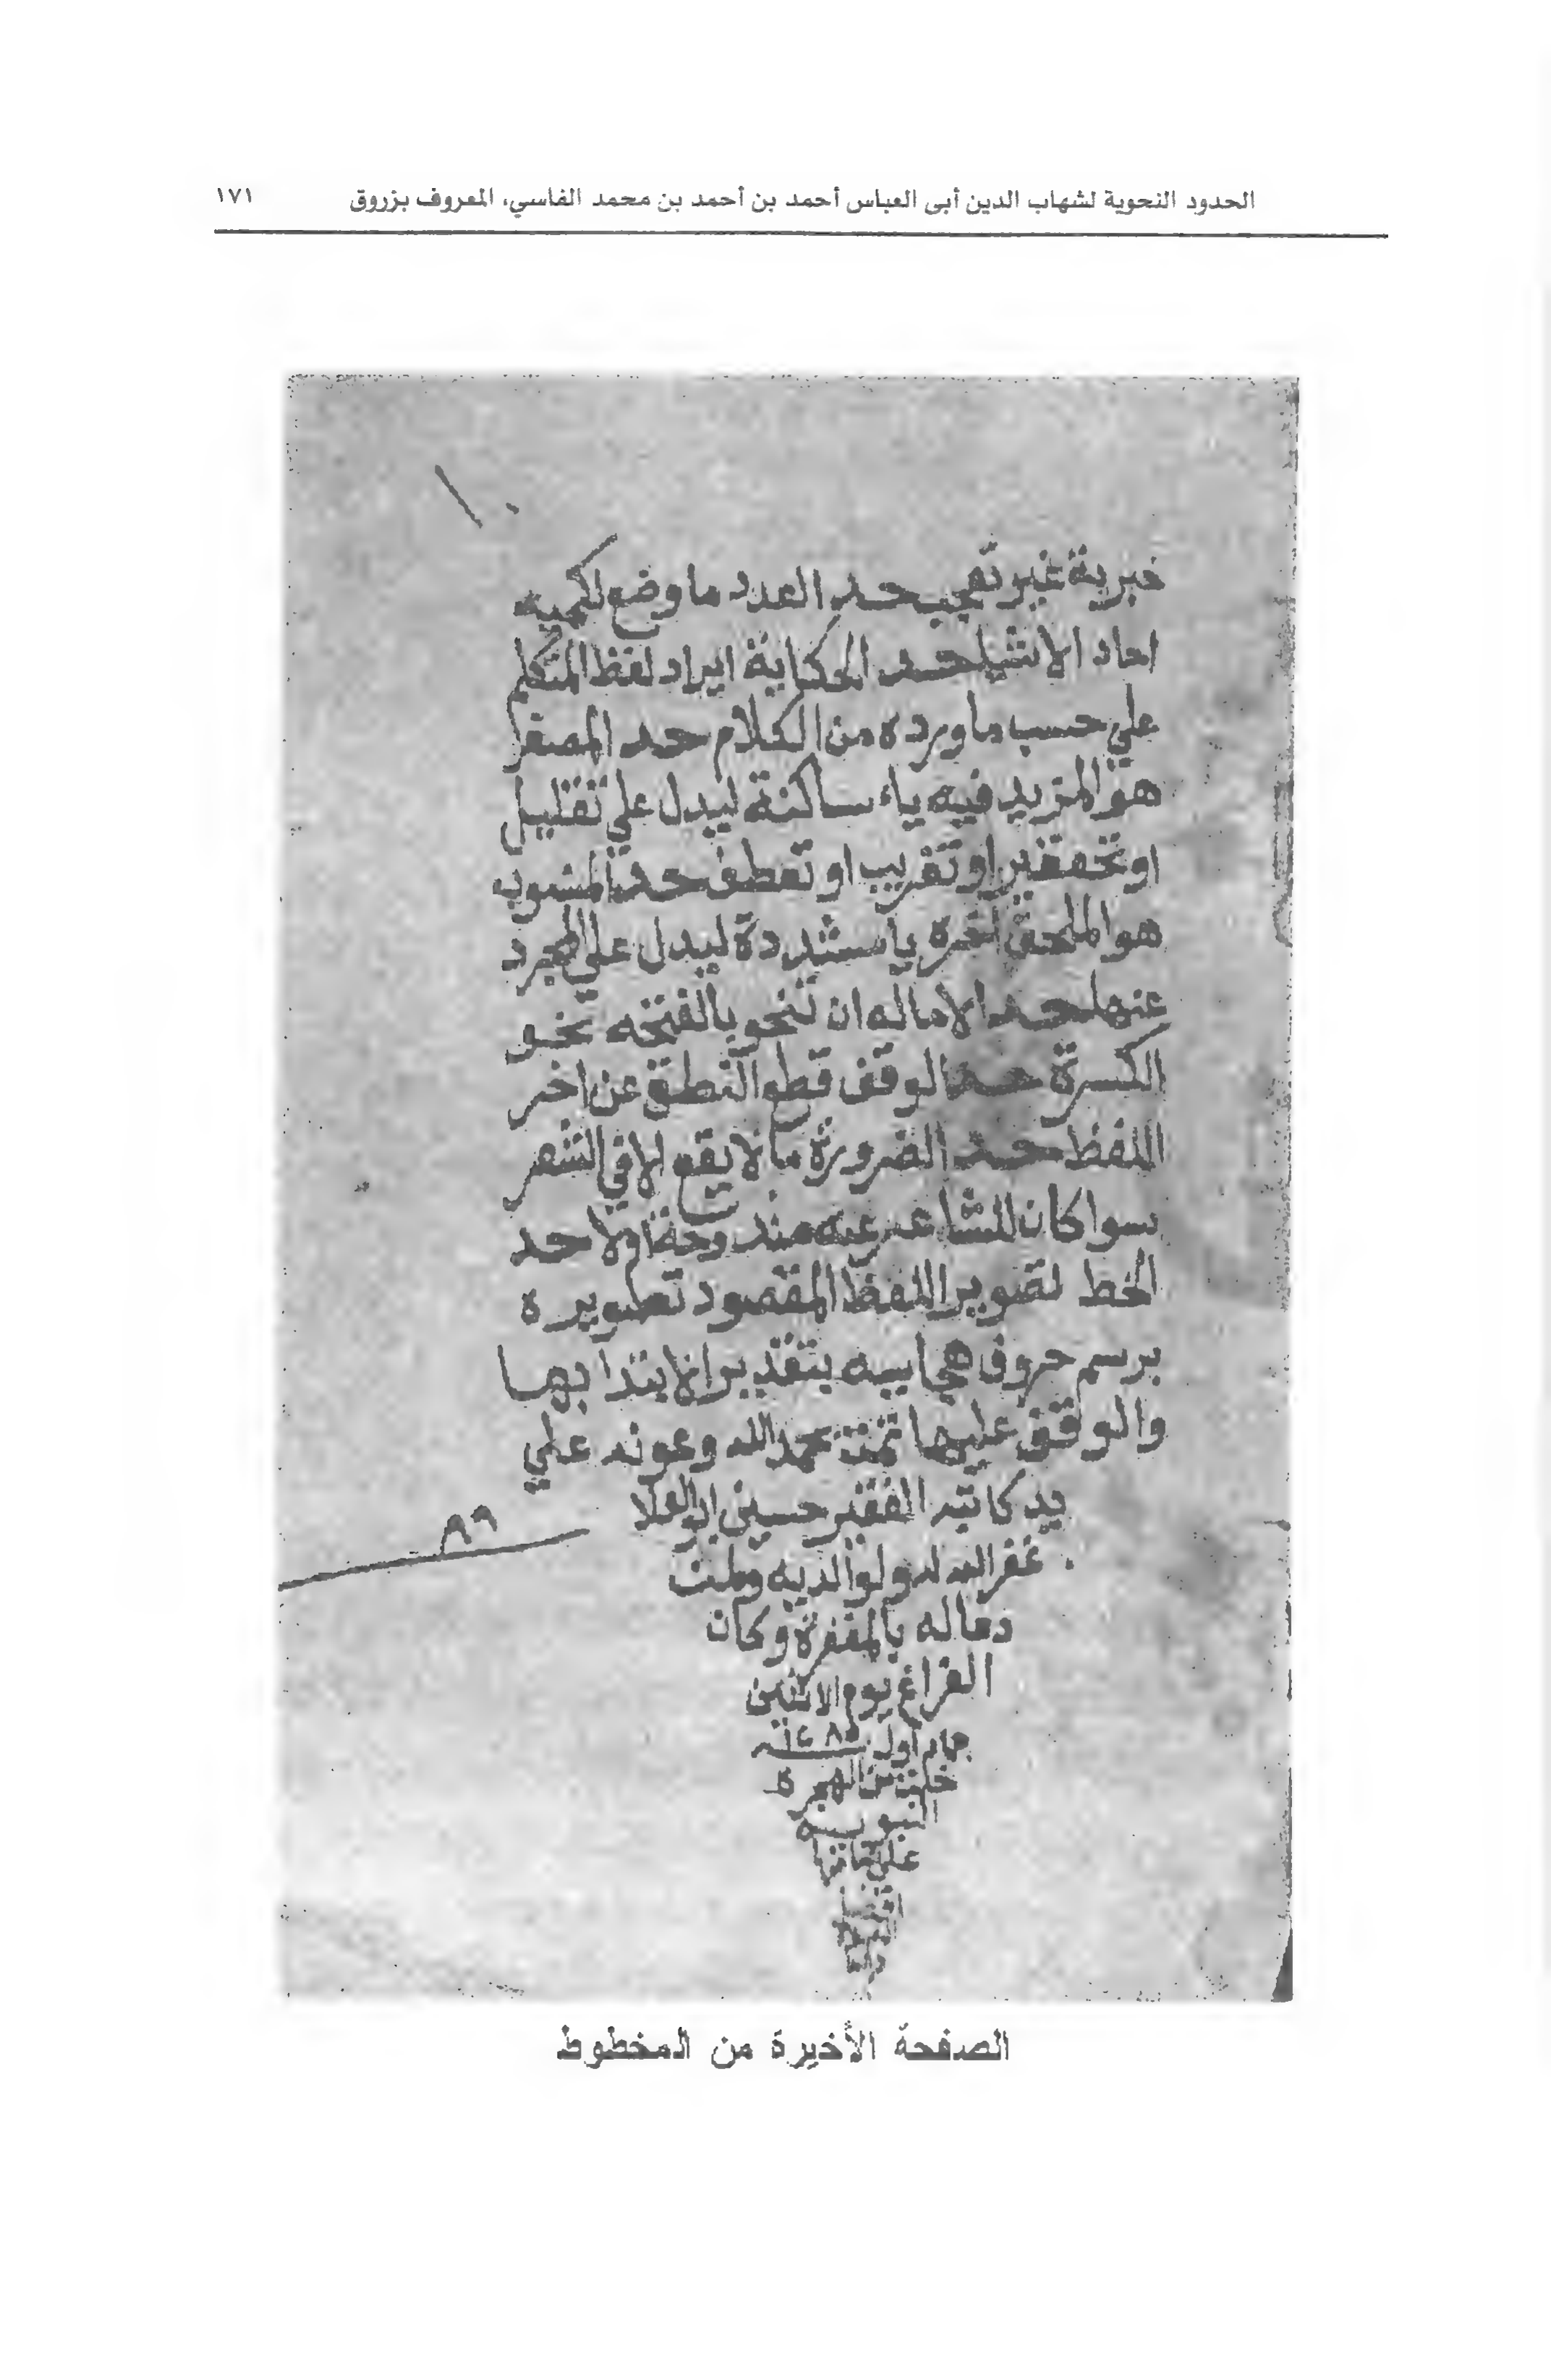 الحدود النحوية لشهاب الدين أبى العباس أحمد بن أحمد بن محمد الفاسي، المعروف بزروق ١٧١
١٠
خبرية غير تعجب حد العدد ما وضع لكميه
احاد الاشيا حد الحكاية ايراد لفظ المتكلم
علي حسب ما ورده من الكلام حد المصغر
هو المزيد فيه ياء ساكنة ليدل علي تقليل
او تحقير او تقريب او تعطف حد المنسوب
هو الملحق اخره يا مشددة ليدل علي المجرد
عنها حد الاماله ان تنحو بالفتحه نحو
الكسرة حد الوقف قطع النطق عن اخر
اللفظ حد الضرورة ما لا يقع الا في الشعر
سوا كان للشاعر عنه مندوحة ام لا حد
الخط تصوير اللفظ المقصود تصويره
برسم حروف هجاييه بتقدير الابتدا بها
والوقف عليها تمت بحمد الله وعونه علي
يد كاتبه الفقير حسين ابو العلا
غفر الله له ولوالديه ولمن
دعاله بالمغفرة وكان
الفراغ يوم الاثنين
جماد اول
خلت من الهجره
النبويه
علي
٨٩
الصفحة الأخيرة من المخطوط